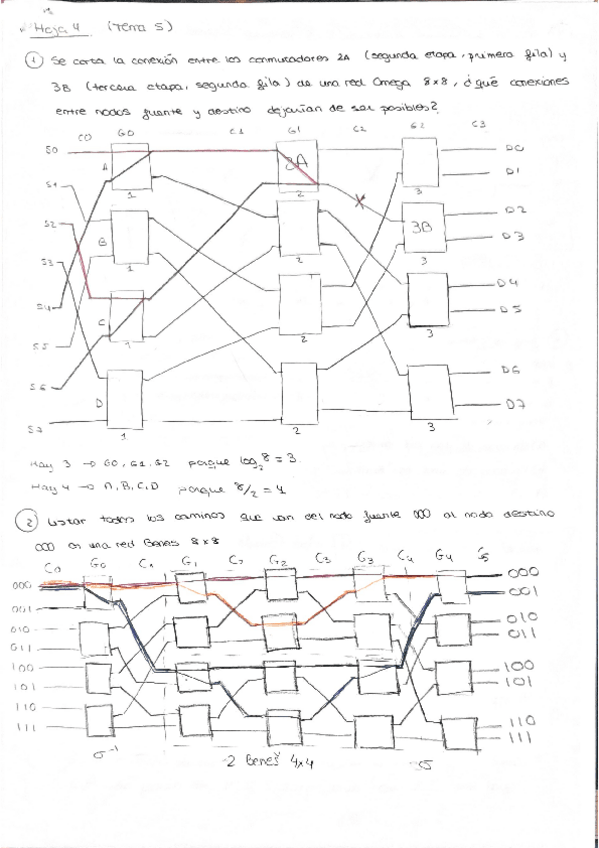 Hoja 4 (Tema 5)
① Se corta la conexión entre los conmutadores 2A (segunda etapa, primera fila) y
3B (tercera etapa, segunda fila) de una red Omega 8x8, ¿qué conexiones
entre nodos fuente y destino dejarían de ser posibles?
C0 G0 C1 G1 C2 G2 C3
S0 A 1 3A 2 3 D0
D1
S1 B 1 2 3B 3 D2
S2 D3
S3 C 1 2 3 D4
S4 D5
S5 D 1 2 3 D6
S6 D7
S7
Hay 3 → G0, G1, G2 porque log₂8 = 3.
Hay 4 → A, B, C, D porque 8/2 = 4
② Listar todos los caminos que van del nodo fuente 000 al nodo destino
000 en una red Benes 8x8
C0 G0 C1 G1 C2 G2 C3 G3 C4 G4 C5
000 000
001 001
010 010
011 011
100 100
101 101
110 110
111 111
σ⁻¹ 2 Beneš 4x4 σ